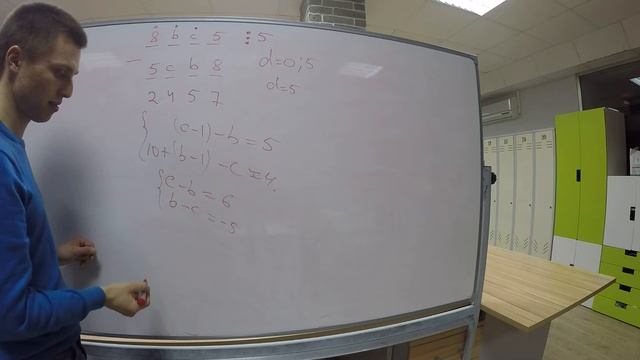 8 b c 5 ⋮ 5
- 5 c b 8 d=0;5
2 4 5 7 d=5
{ (c-1)-b=5
10+(b-1)-c=4
{ c-b=6
b-c=-5